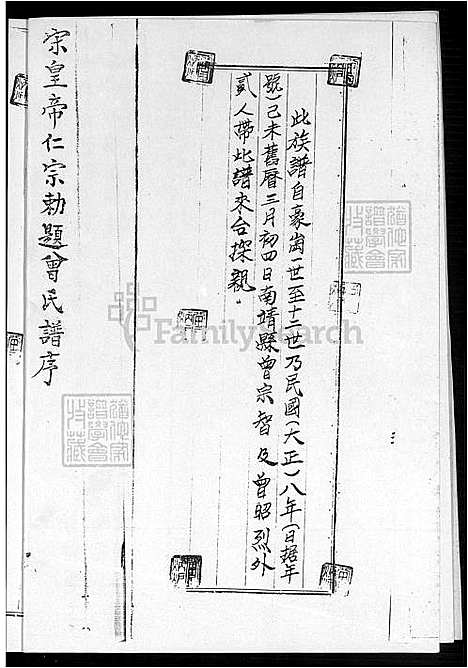 此族譜自豪崗一世至十二世乃民國(大正)八年(日据年
號)己未舊曆三月初四日南靖縣曾宗智及曾昭烈外
貳人帶此譜來台探親。
宗皇帝仁宗勅題曾氏譜序
FamilySearch